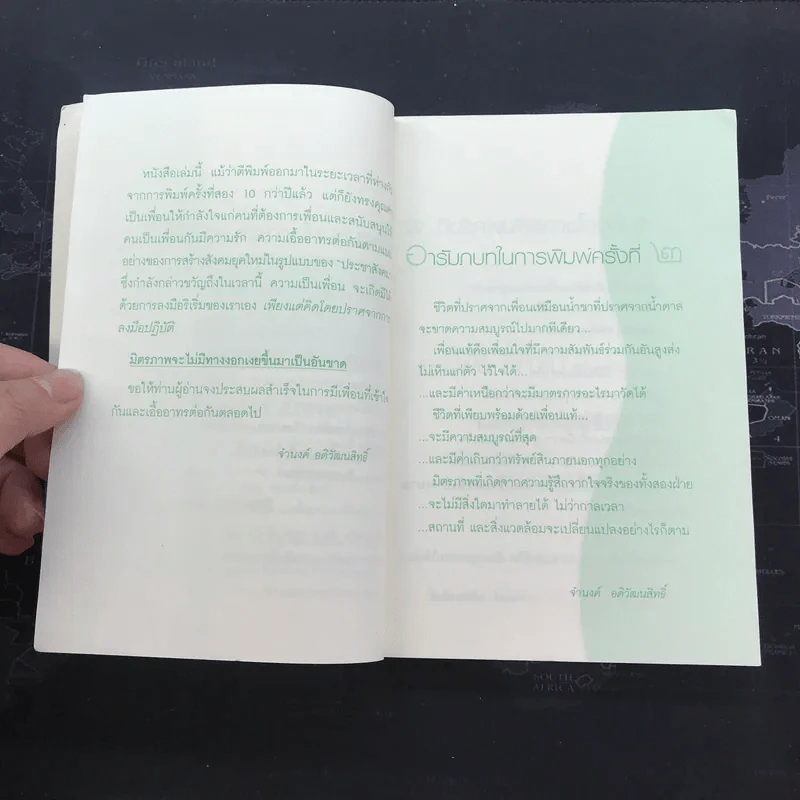 หนังสือเล่มนี้ แม้ว่าตีพิมพ์ออกมาในระยะเวลาที่ห่าง
จากการพิมพ์ครั้งที่สอง 10 กว่าปีแล้ว แต่ก็ยังทรงคุณค่า
เป็นเพื่อนให้กำลังใจแก่คนที่ต้องการเพื่อนและสนับสนุนให้
คนเป็นเพื่อนกันมีความรัก ความเอื้ออาทรต่อกันตาม
อย่างของการสร้างสังคมยุคใหม่ในรูปแบบของ "ประชาสังคม
ซึ่งกำลังกล่าวขวัญถึงในเวลานี้ ความเป็นเพื่อน จะเกิดมี
ด้วยการลงมือริเริ่มของเราเอง เพียงแต่คิดโดยปราศจากการ
ลงมือปฏิบัติ
มิตรภาพจะไม่มีทางงอกเงยขึ้นมาเป็นอันขาด
ขอให้ท่านผู้อ่านจงประสบผลสำเร็จในการมีเพื่อนที่เข้าใจ
กันและเอื้ออาทรต่อกันตลอดไป
จำนงค์ อดิวัฒนสิทธิ์
อารัมภบทในการพิมพ์ครั้งที่ ๒
ชีวิตที่ปราศจากเพื่อนเหมือนน้ำชาที่ปราศจากน้ำตาล
จะขาดความสมบูรณ์ไปมากทีเดียว...
เพื่อนแท้คือเพื่อนใจที่มีความสัมพันธ์ร่วมกันอันสูงส่ง
ไม่เห็นแก่ตัว ไว้ใจได้...
...และมีค่าเหนือกว่าจะมีมาตรการอะไรมาวัดได้
ชีวิตที่เพียบพร้อมด้วยเพื่อนแท้...
...จะมีความสมบูรณ์ที่สุด
...และมีค่าเกินกว่าทรัพย์สินภายนอกทุกอย่าง
มิตรภาพที่เกิดจากความรู้สึกจากใจจริงของทั้งสองฝ่าย
...จะไม่มีสิ่งใดมาทำลายได้ ไม่ว่ากาลเวลา
...สถานที่ และสิ่งแวดล้อมจะเปลี่ยนแปลงอย่างไรก็ตาม
จำนงค์ อดิวัฒนสิทธิ์
SOUTH
AFRICA